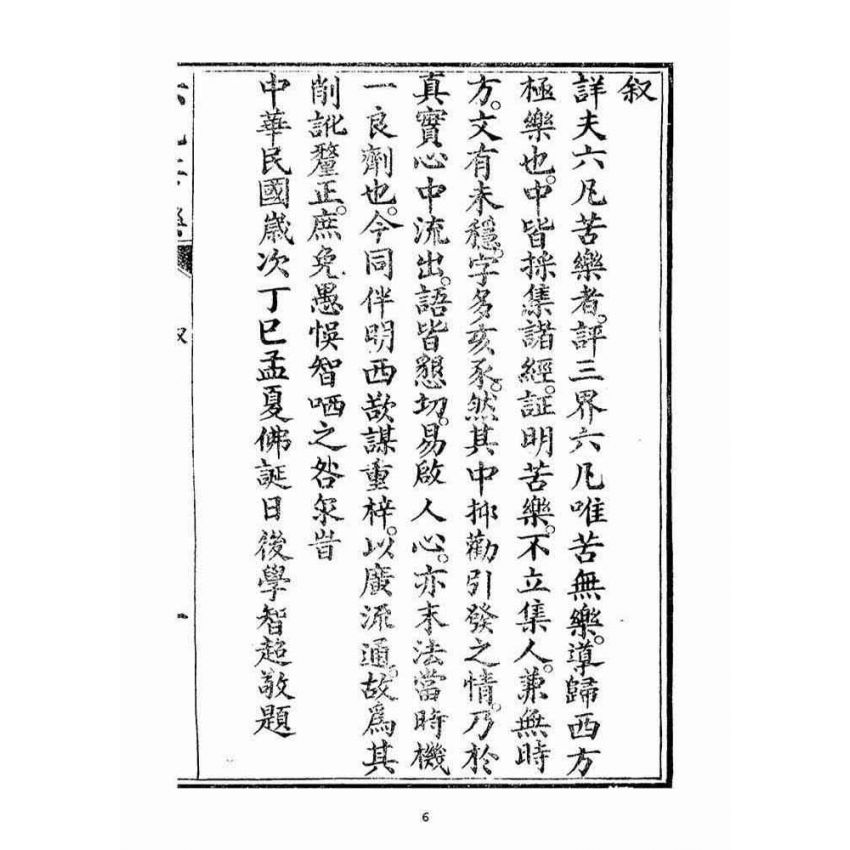 叙
詳夫六凡苦樂者。評三界六凡唯苦無樂。導歸西方
極樂也。中皆採集諸經。証明苦樂。不立集人。兼無時
方。文有未穩。字多亥豕。然其中抑勸引發之情。乃於
真實心中流出。語皆懇切。易啟人心。亦末法當時機
一良劑也。今同伴明西欲謀重梓。以廣流通。故爲其
削訛釐正。庶免愚悞智哂之咎尔旹
中華民國嵗次丁巳孟夏佛誕日後學智超敬題
叙
一
6